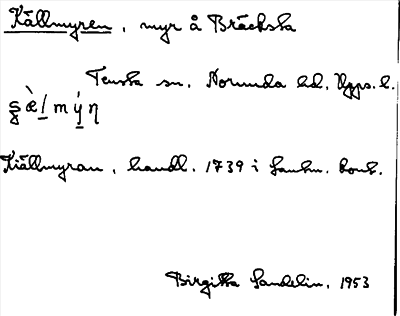 Källmyren, myr å Bräcksta
Tensta sn. Norunda hd. Upps. l.
ʂæ̀lmýn
Kiällmyran, handl. 1739 i Lantm. kont.
Birgitta Sandelin, 1953